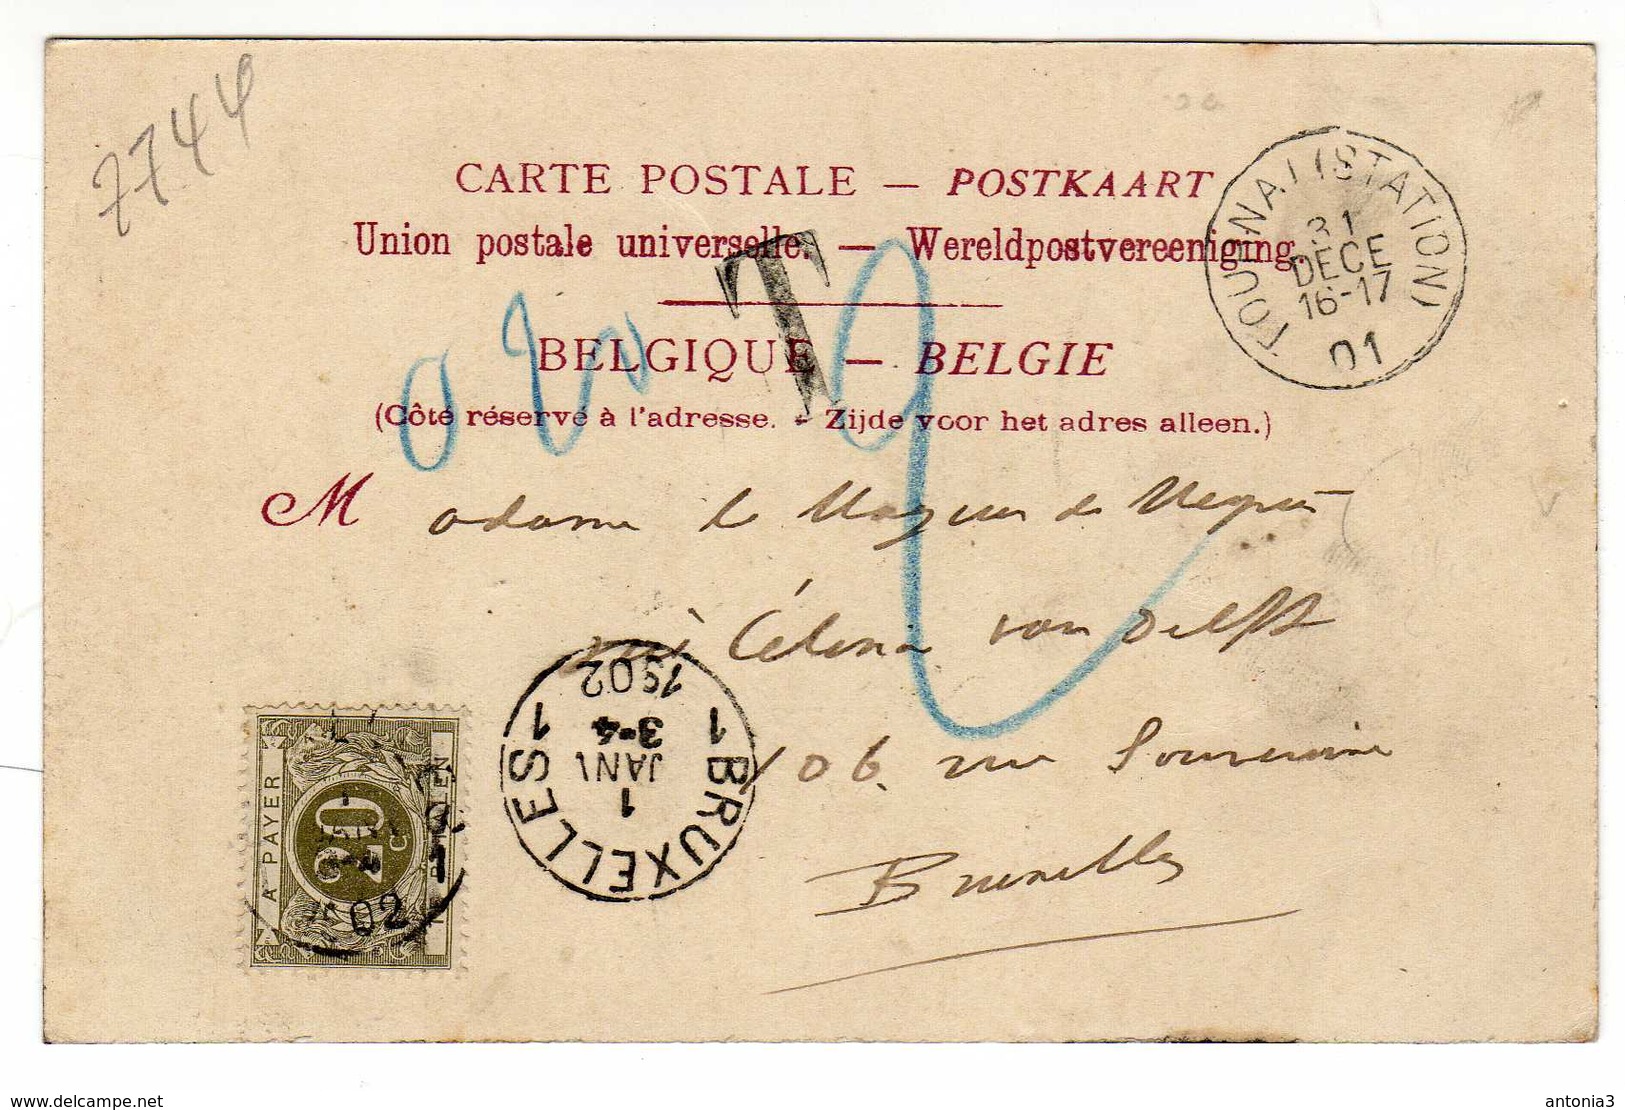 7744
CARTE POSTALE — POSTKAART
Union postale universelle. — Wereldpostvereeniging.
T
BELGIQUE — BELGIE
(Côté réservé à l'adresse. - Zijde voor het adres alleen.)
TOURNAI (STATION)
31
DECE
16-17
01
Madame le
Célina van Delft
106. rue Souveraine
Bruxelles
BRUXELLES
1 1
1
JANV
3-4
1902
A PAYER
20
C
TE BETALEN
02
www.delcampe.net
antonia3